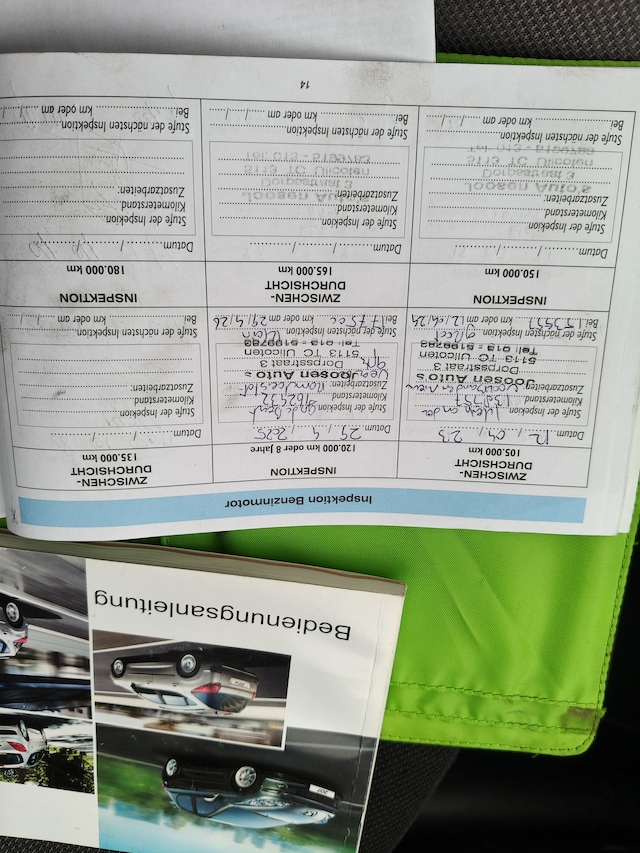 Bedienungsanleitung
Inspektion Benzinmotor
ZWISCHEN-
DURCHSICHT
105.000 km
Datum 12 / 04 / 23
Stufe der Inspektion
Kilometerstand 138957
Zusatzarbeiten:
Joosen Auto's
Dorpsstraat 3
5113 TC Ulicoten
Tel: 013 - 5199783
Stufe der nächsten Inspektion
Bei 153957 km oder am 12/04/24
INSPEKTION
120.000 km oder 8 Jahre
Datum 29 / 4 / 2025
Stufe der Inspektion
Kilometerstand 162532
Zusatzarbeiten:
Joosen Auto's
Dorpsstraat 3
5113 TC Ulicoten
Tel: 013 - 5199783
Stufe der nächsten Inspektion klein
Bei 177500 km oder am 29/4/26
ZWISCHEN-
DURCHSICHT
135.000 km
Datum / /
Stufe der Inspektion
Kilometerstand
Zusatzarbeiten:
Stufe der nächsten Inspektion
Bei km oder am / /
INSPEKTION
150.000 km
Datum / /
Stufe der Inspektion
Kilometerstand
Zusatzarbeiten:
Joosen Auto's
Dorpsstraat 3
5113 TC Ulicoten
Tel: 013 - 5199783
Stufe der nächsten Inspektion
Bei km oder am / /
ZWISCHEN-
DURCHSICHT
165.000 km
Datum / /
Stufe der Inspektion
Kilometerstand
Zusatzarbeiten:
Joosen Auto's
Dorpsstraat 3
5113 TC Ulicoten
Tel: 013 - 5199783
Stufe der nächsten Inspektion
Bei km oder am / /
INSPEKTION
180.000 km
Datum / /
Stufe der Inspektion
Kilometerstand
Zusatzarbeiten:
Stufe der nächsten Inspektion
Bei km oder am / /
14